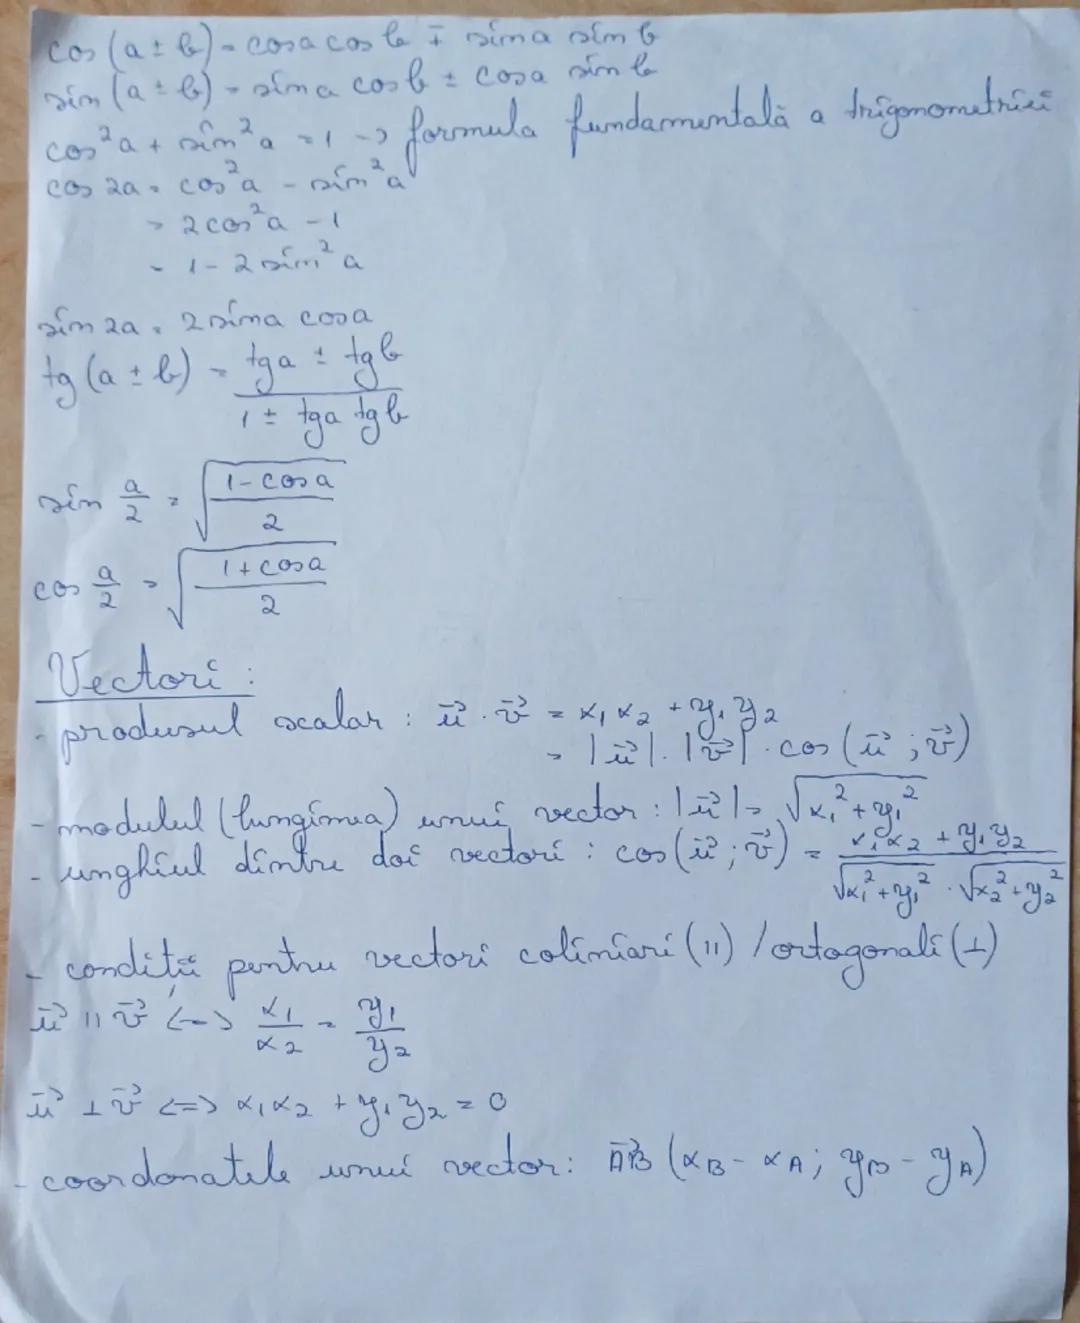 cos (a ± b) = cosa cos b ∓ sina sin b
sin (a ± b) = sina cosb ± cosa sin b
cos²a + sin²a = 1 -> formula fundamentală a trigonometriei
cos 2a = cos²a - sin²a
= 2cos²a - 1
= 1 - 2 sin² a
sin 2a = 2 sina cosa
tg (a ± b) = (tga ± tgb) / (1 ± tga tgb)
sin a/2 = √((1 - cosa)/2)
cos a/2 = √((1 + cosa)/2)
Vectori :
- produsul scalar : u⃗ · v⃗ = x₁x₂ + y₁y₂
= |u⃗| · |v⃗| · cos (u⃗ ; v⃗)
- modulul (lungimea) unui vector : |u⃗| = √(x₁² + y₁²)
- unghiul dintre doi vectori : cos (u⃗ ; v⃗) = (x₁x₂ + y₁y₂) / (√(x₁² + y₁²) · √(x₂² + y₂²))
- condiții pentru vectori coliniari (||) / ortagonali (⊥)
u⃗ || v⃗ <-> x₁/x₂ = y₁/y₂
u⃗ ⊥ v⃗ <=> x₁x₂ + y₁y₂ = 0
- coordonatele unui vector: AB⃗ (xB - xA ; yB - yA)